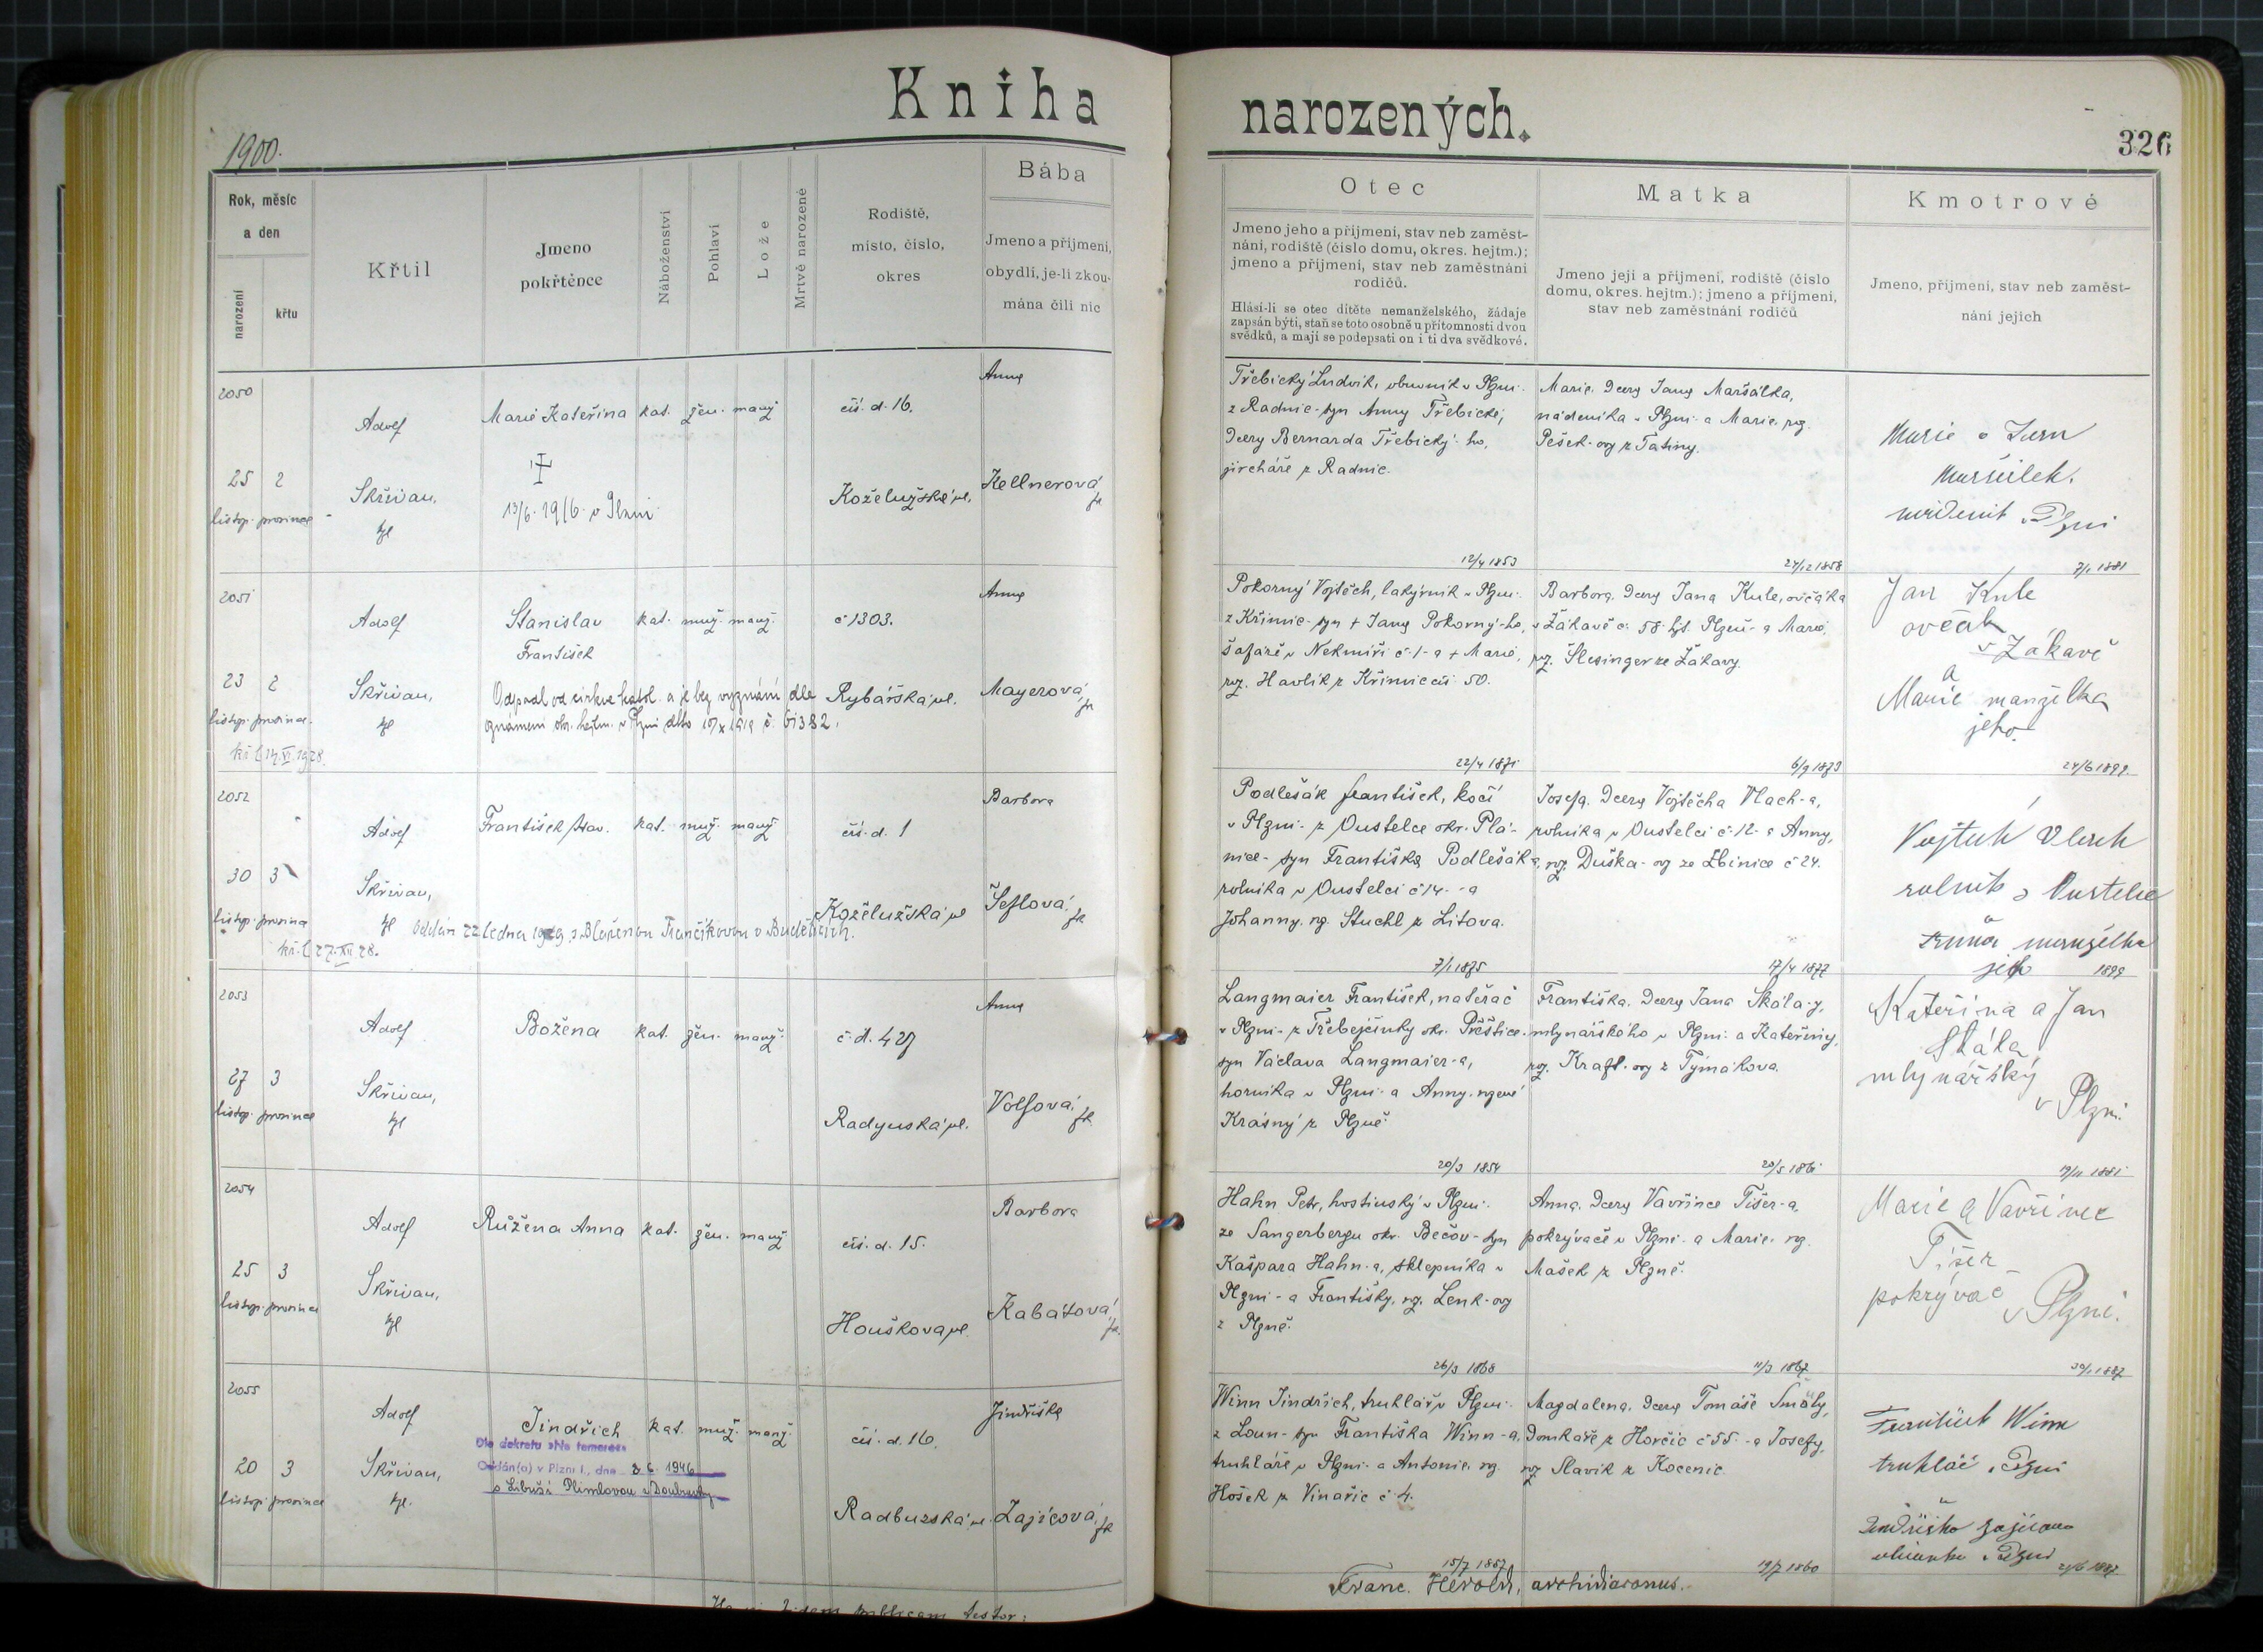 Kniha
narozených.
1900.
326
Rok, měsíc
a den
narození
křtu
Křtil
Jmeno
pokřtěnce
Náboženství
Pohlaví
Lože
Mrtvě narozené
Rodiště,
místo, číslo,
okres
Bába
Jmeno a příjmení,
obydlí, je-li zkou-
mána čili nic
Otec
Jmeno jeho a příjmení, stav neb zaměst-
nání, rodiště (číslo domu, okres. hejtm.);
jmeno a příjmení, stav neb zaměstnání
rodičů.
Hlásí-li se otec dítěte nemanželského, žádaje
zapsán býti, staň se toto osobně u přítomnosti dvou
svědků, a mají se podepsati on i ti dva svědkové.
Matka
Jmeno její a příjmení, rodiště (číslo
domu, okres. hejtm.); jmeno a příjmení,
stav neb zaměstnání rodičů
Kmotrové
Jmeno, příjmení, stav neb zaměst-
nání jejich
2050
25 2
listop. prosince
Adolf
Skřivan,
Marie Kateřina kat. žen. manž.
13/6 1916 v Plzni
čís. d. 16.
Koželužská ul.
Anna
Kellnerová
Třebický Ludvík, obuvník v Plzni
z Radnic - syn Anny Třebické,
dcery Bernarda Třebický-ho,
jircháře z Radnic.
12/4 1853
Marie, dcera Jana Maršálka,
nádeníka v Plzni a Marie, roz.
Pešek-ov z Tatiny.
24/12 1858
Marie a Jan
Maršálek.
nádeník v Plzni
7/1 1881
2051
23 2
listop. prosince.
kř. l. 14.VI.1928.
Adolf
Skřivan,
Stanislav kat. muž. manž.
František
Odpadl od církve katol. a je bez vyznání dle
oznámení okr. hejtm. v Plzni dto 10/X 1919 č. 61382.
č 1303.
Rybářská ul.
Anna
Mayerová
Pokorný Vojtěch, lakýrník v Plzni
z Křimic - syn + Jana Pokorný-ho,
šafáře v Nekmíři č. 1 - a + Marie,
roz. Havlík z Křimic čís. 50.
22/4 1871
Barbora, dcera Jana Kule, ovčáka
v Žákavě č. 58 hejt. Plzeň - a Marie,
roz. Šlesinger ze Žákavy.
6/9 1873
Jan Kule
ovčák
v Žákavě
a
Marie manželka
jeho
24/6 1899
2052
30 3
listop. prosince
kř. l. 27.XII 28.
Adolf
Skřivan,
František kat. muž. manž.
Oddán 22 ledna 1929 s Blaženou Frančíkovou v Budějicích.
čís. d. 1
Koželužská ul
Barbora
Šeflová
Podlešák František, kočí
v Plzni - z Oustelce okr. Plá-
nice - syn Františka Podlešáka,
rolníka v Oustelci č 14 - a
Johanny, roz. Stuchl z Litova.
7/1 1875
Josefa, dcera Vojtěcha Vlach-a,
rolníka v Oustelci č. 12 - a Anny,
roz. Duška-ov ze Zbinice č 24.
17/4 1877
Vojtěch Vlach
rolník z Oustelce
a
Anna manželka
jeho
1899
2053
27 3
listop. prosince
Adolf
Skřivan,
Božena kat. žen. manž.
č. d. 427
Radyňská ul.
Anna
Volfová
Langmaier František, natěrač
v Plzni - z Třebejčinky okr. Přeštice.
syn Václava Langmaier-a,
horníka v Plzni - a Anny, rozené
Krásný z Plzně.
20/3 1854
Františka, dcera Jana Skála-y,
mlynářského v Plzni a Kateřiny,
roz. Kraft-ov z Týmákova.
20/5 1861
Kateřina a Jan
Skála
mlynářský
v Plzni.
19/11 1881
2054
25 3
listop. prosince
Adolf
Skřivan,
Růžena Anna kat. žen. manž.
čís. d. 15.
Houškova ul.
Barbora
Kabátová
Hahn Petr, hostinský v Plzni
ze Sangerbergu okr. Bečov - syn
Kašpara Hahn-a, sklepníka v
Plzni - a Františky, roz. Lenk-ov
z Plzně.
26/3 1868
Anna, dcera Vavřince Tišer-a,
pokrývače v Plzni - a Marie, roz.
Mašek z Plzně.
11/3 1867
Marie a Vavřinec
Tišer
pokrývač
v Plzni.
1887
2055
20 3
listop. prosince
Adolf
Skřivan,
Jindřich kat. muž. manž.
Dle dekretu »Ne temere«
Oddán(a) v Plzni I., dne 8.6. 1946
s Libuší Plimlovou z Doubravky
čís. d. 16.
Radbuzská ul.
Jindřiška
Zajícová
Winn Jindřich, truhlář v Plzni
z Loun - syn Františka Winn-a,
truhláře v Plzni - a Antonie, roz.
Hošek z Vinařic č 4.
15/7 1857
Magdalena, dcera Tomáše Smoly,
domkáře z Horčic č 55 - a Josefy,
roz. Slavík z Kocenic.
19/7 1860
František Winn
truhlář v Plzni
a
Jindřiška Zajícova
v Plzni
21/6 1887
Franc. Herold, archidiaconus.
fidem publicam testor: